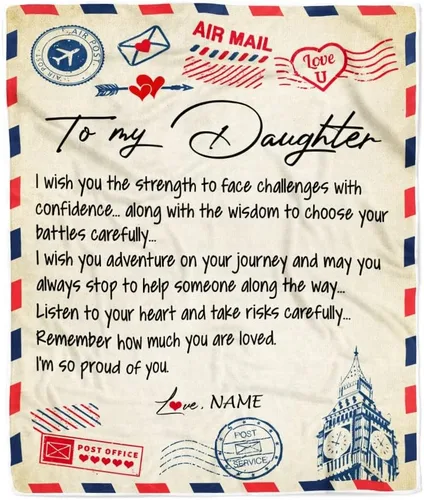 AIR POST
AIR POST
AIR MAIL
Love
U
To my Daughter
I wish you the strength to face challenges with
confidence... along with the wisdom to choose your
battles carefully...
I wish you adventure on your journey and may you
always stop to help someone along the way...
Listen to your heart and take risks carefully...
Remember how much you are loved.
I'm so proud of you.
Love, NAME
POST OFFICE
POST
SERVICE